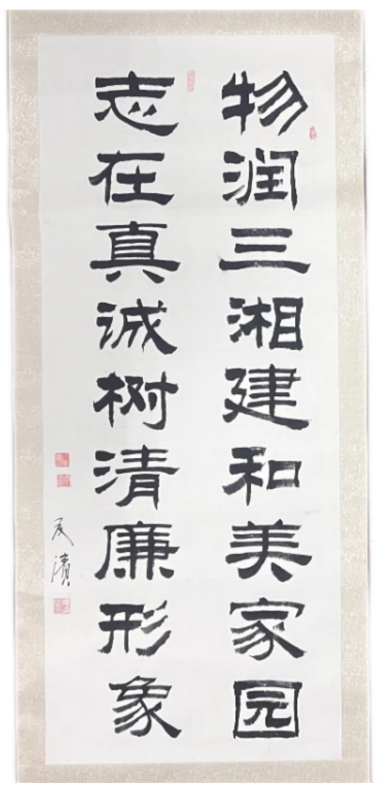 物润三湘建和美家园
志在真诚树清廉形象